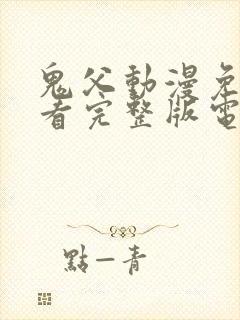 鬼父動漫免
看完整版電
點一青